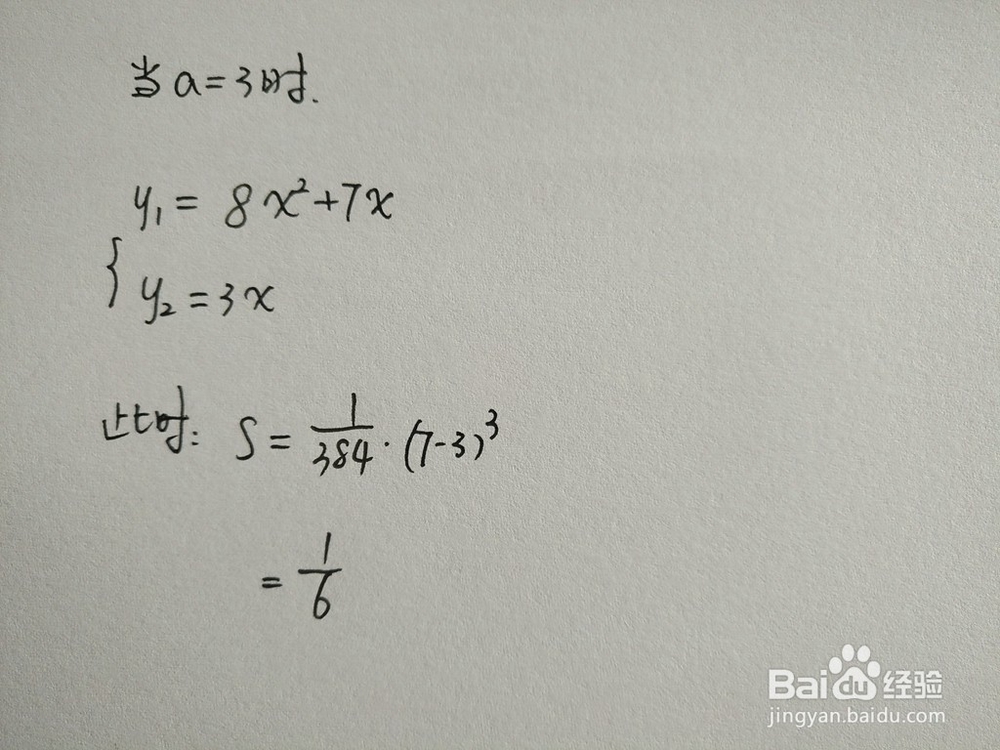 当a=3时.
y₁ = 8x²+7x
{ y₂ = 3x
此时: S = 1/384 · (7-3)³
= 1/6
Baidu 经验
jingyan.baidu.com